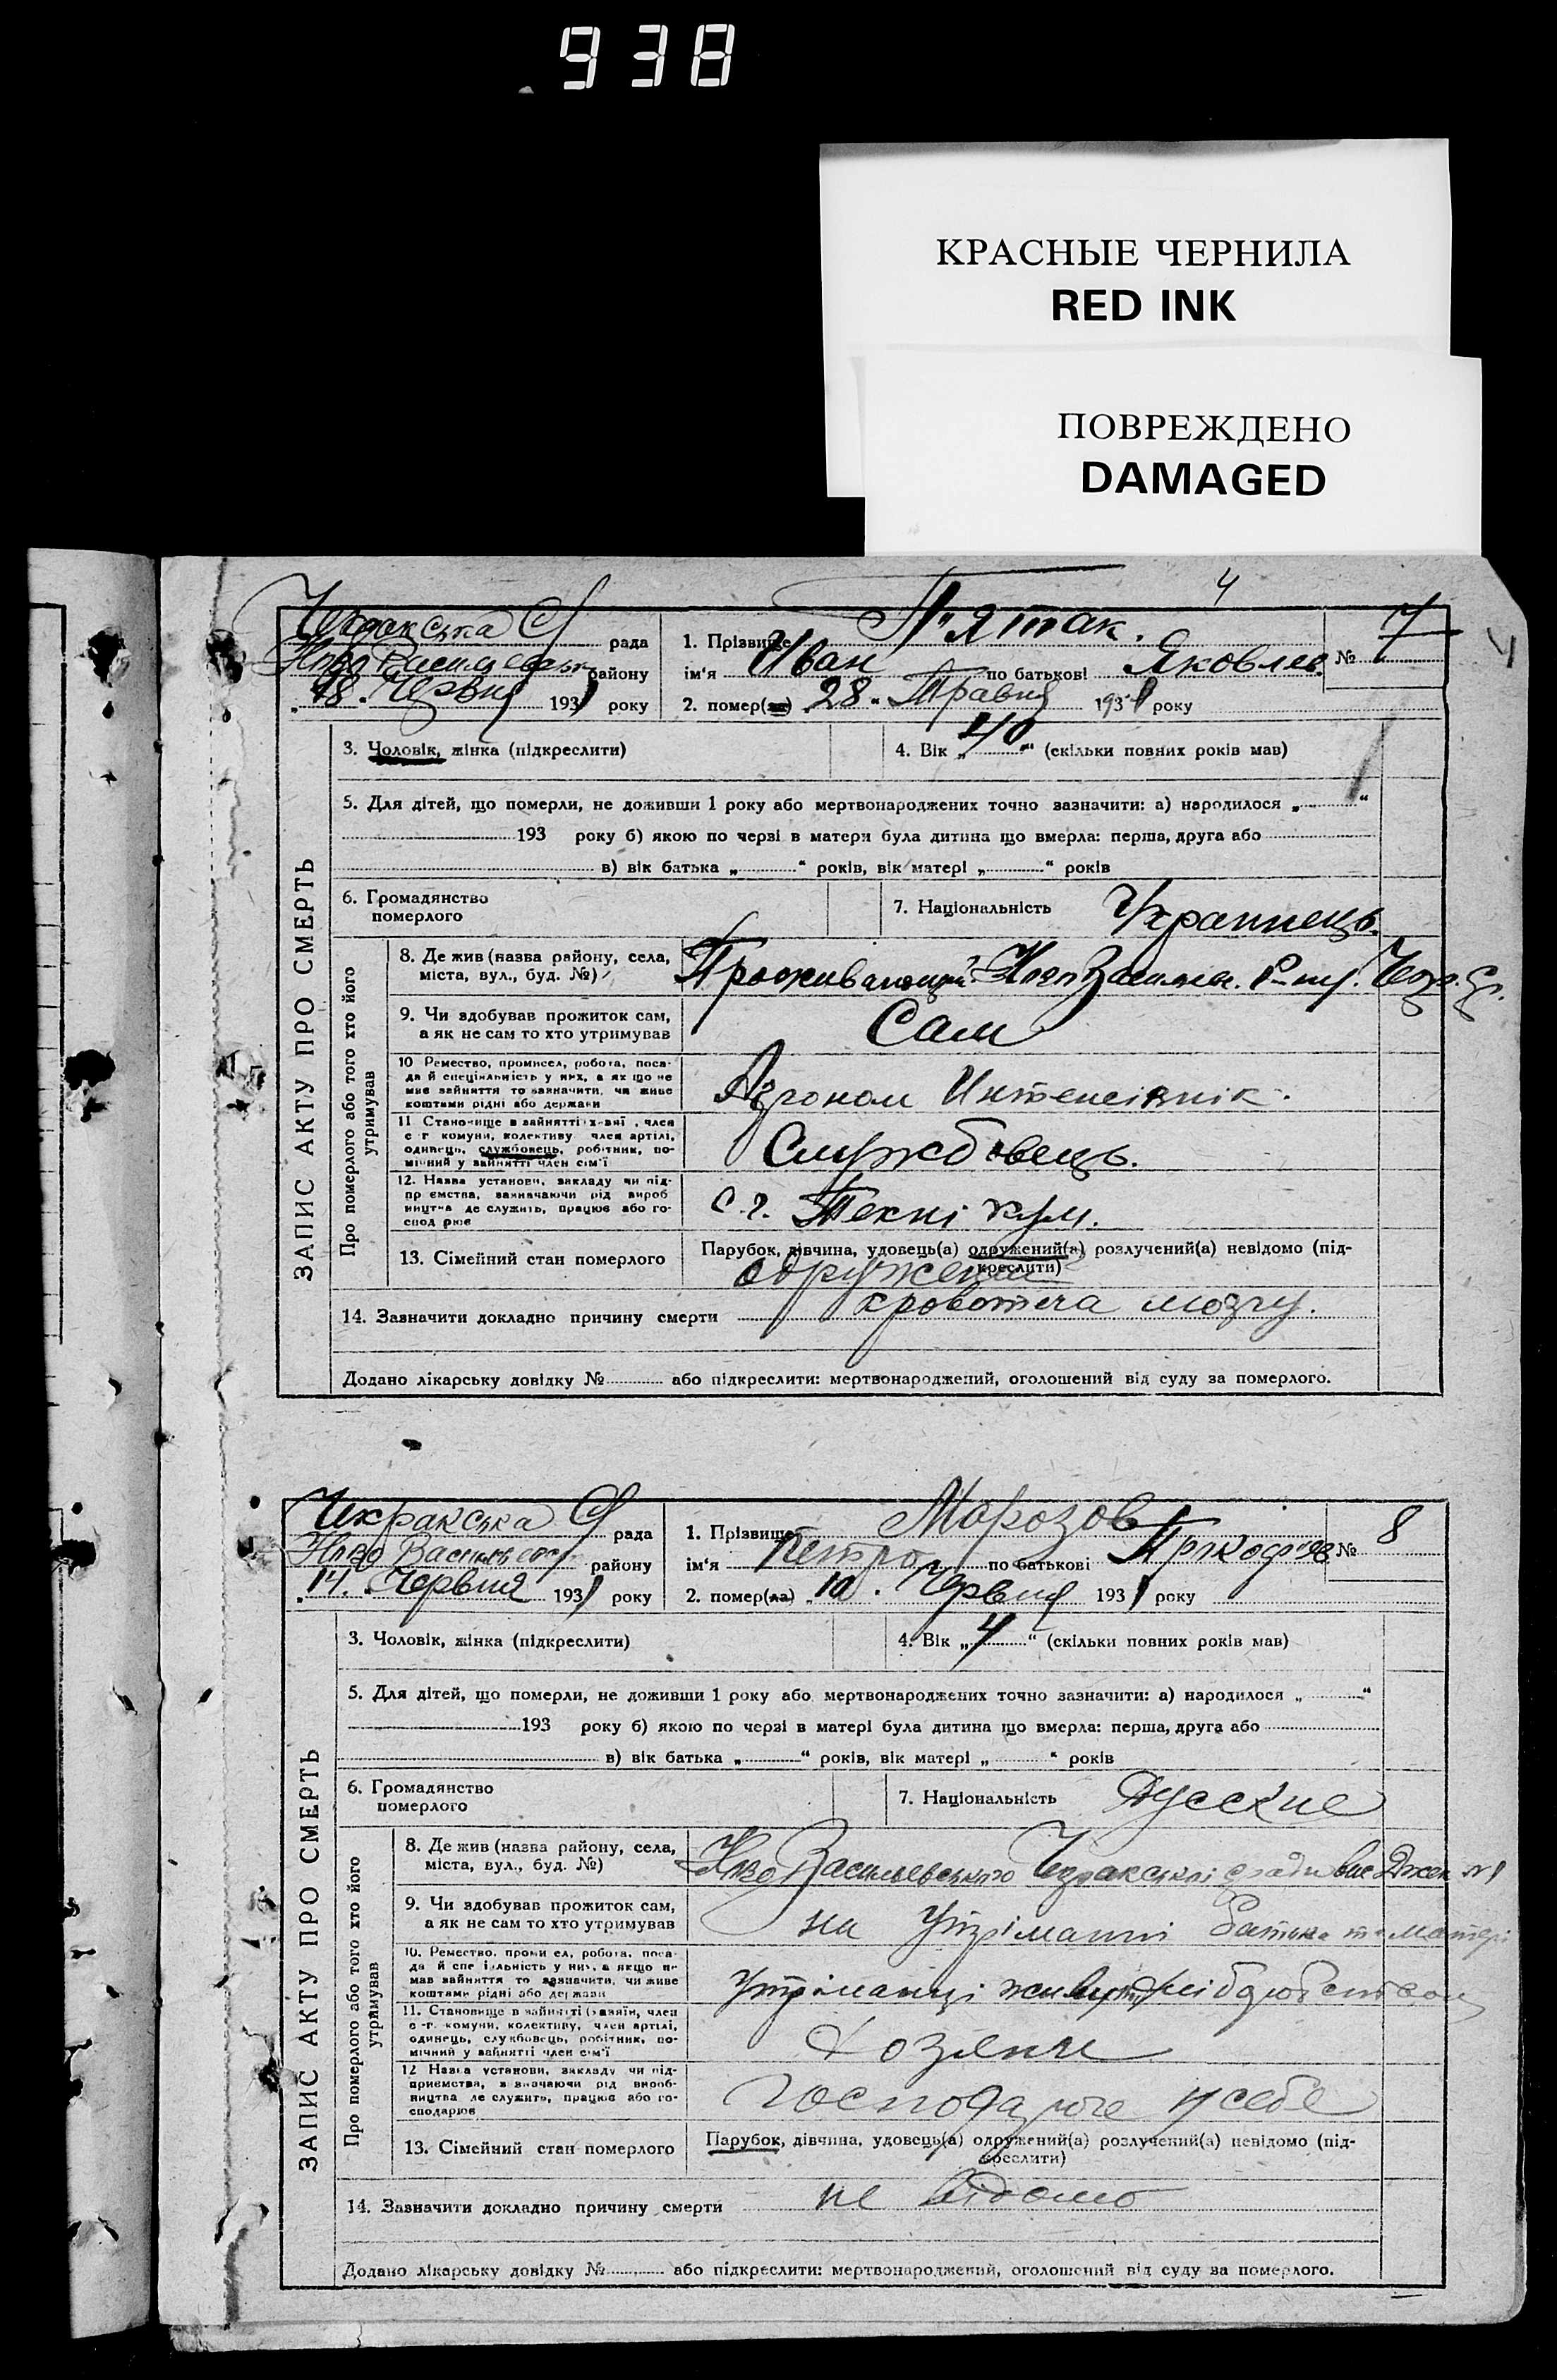 938
КРАСНЫЕ ЧЕРНИЛА
RED INK
ПОВРЕЖДЕНО
DAMAGED
4
4
ЗАПИС АКТУ ПРО СМЕРТЬ
Чекракська С/ рада
Ново Василевськ району
"18" Червня 1931 року
1. Прізвище П'ятак.
ім'я Иван по батькові Яковлев.
№ 7
2. помер(ла) "28" Травня 1931 року
3. Чоловік, жінка (підкреслити)
4. Вік „40“ (скільки повних років мав)
5. Для дітей, що померли, не доживши 1 року або мертвонароджених точно зазначити: а) народилося „ “
193 року б) якою по черзі в матери була дитина що вмерла: перша, друга або
в) вік батька „ “ років, вік матері „ “ років
6. Громадянство
померлого
7. Національність Українець.
Про померлого або того хто його
утримував
8. Де жив (назва району, села,
міста, вул., буд. №)
9. Чи здобував прожиток сам,
а як не сам то хто утримував
Сам
10 Ремество, промисел, робота, поса-
да й специіяльність у них, а як що не
мав зайняття то зазначити, чи живе
коштами рідні або держави
Агроном Интенсівнік.
11 Становище в зайнятті хазяї, член
с г комуни, колективу член артілі,
одинець, службовець, робітник, по-
мічний у зайнятті член сім'ї
Службовець.
12. Назва установи, закладу чи під-
приємства, зазначаючи рід вироб
ництва де служить, працює або го-
сподарює
с.г. Технікум.
13. Сімейний стан померлого
Парубок, дівчина, удовець(а) одружений(а) розлучений(а) невідомо (під-
креслити)
одружений
14. Зазначити докладно причину смерти кровотеча мозгу.
Додано лікарську довідку № або підкреслити: мертвонароджений, оголошений від суду за померлого.
ЗАПИС АКТУ ПРО СМЕРТЬ
Чекракська С/ рада
Ново Василевськ району
"14" Червня 1931 року
1. Прізвище Морозов
ім'я Петро по батькові
№ 8
2. помер(ла) "10" Червня 1931 року
3. Чоловік, жінка (підкреслити)
4. Вік „4“ (скільки повних років мав)
5. Для дітей, що померли, не доживши 1 року або мертвонароджених точно зазначити: а) народилося „ “
193 року б) якою по черзі в матері була дитина що вмерла: перша, друга або
в) вік батька „ “ років, вік матері „ “ років
6. Громадянство
померлого
7. Національність Русские
Про померлого або того хто його
утримував
8. Де жив (назва району, села,
міста, вул., буд. №)
9. Чи здобував прожиток сам,
а як не сам то хто утримував
на утріманні Батька та матері
10. Ремество, промисел, робота, поса-
да й специіяльність у них, а якщо не
мав зайняття то зазначити, чи живе
коштами рідні або держави
11. Становище в зайнятті (хазяїн, член
с.-г. комуни, колективу, член артілі,
одинець, службовець, робітник, по-
мічний у зайнятті член сім'ї
Хозяин
12 Назва установи, закладу чи під-
приємства, зазначаючи рід вироб-
ництва де служить, працює або го-
сподарює
господарюе у себе
13. Сімейний стан померлого
Парубок, дівчина, удовець(а) одружений(а) розлучений(а) невідомо (під-
креслити)
14. Зазначити докладно причину смерти не відомо
Додано лікарську довідку № або підкреслити: мертвонароджений, оголошений від суду за померлого.